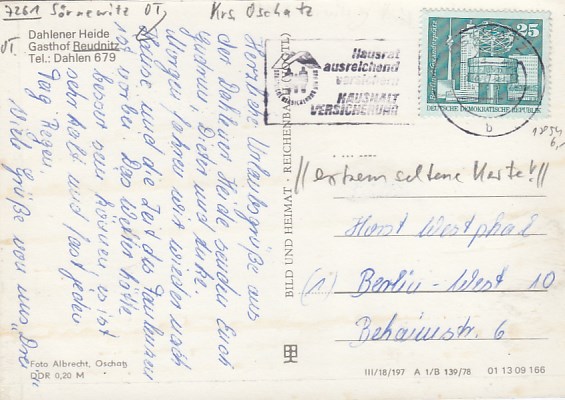 7261 Sörnewitz OT, Krs Oschatz
OT
Dahlener Heide
Gasthof Reudnitz
Tel.: Dahlen 679
Hausrat
ausreichend
versichern
HAUSHALT
VERSICHERUNG
25
DEUTSCHE DEMOKRATISCHE REPUBLIK
b
6,-
// extrem seltene Karte! //
Herzliche Urlaubsgrüße aus
der Dahlener Heide senden Euch
Gudrun, Dieter und
Morgen fahren wir wieder nach
Hause und die Zeit des Faulenzens
ist vorbei. Das Wetter hätte
besser sein können, es ist
sehr kalt und fast jeden
Tag Regen.
Viele Grüße von uns "Drei"
BILD UND HEIMAT · REICHENBACH (VOGTL)
Horst Westphal
(1) Berlin-West 10
Behaimstr. 6
Foto Albrecht, Oschatz
DDR 0,20 M
III/18/197 A 1/B 139/78 01 13 09 166